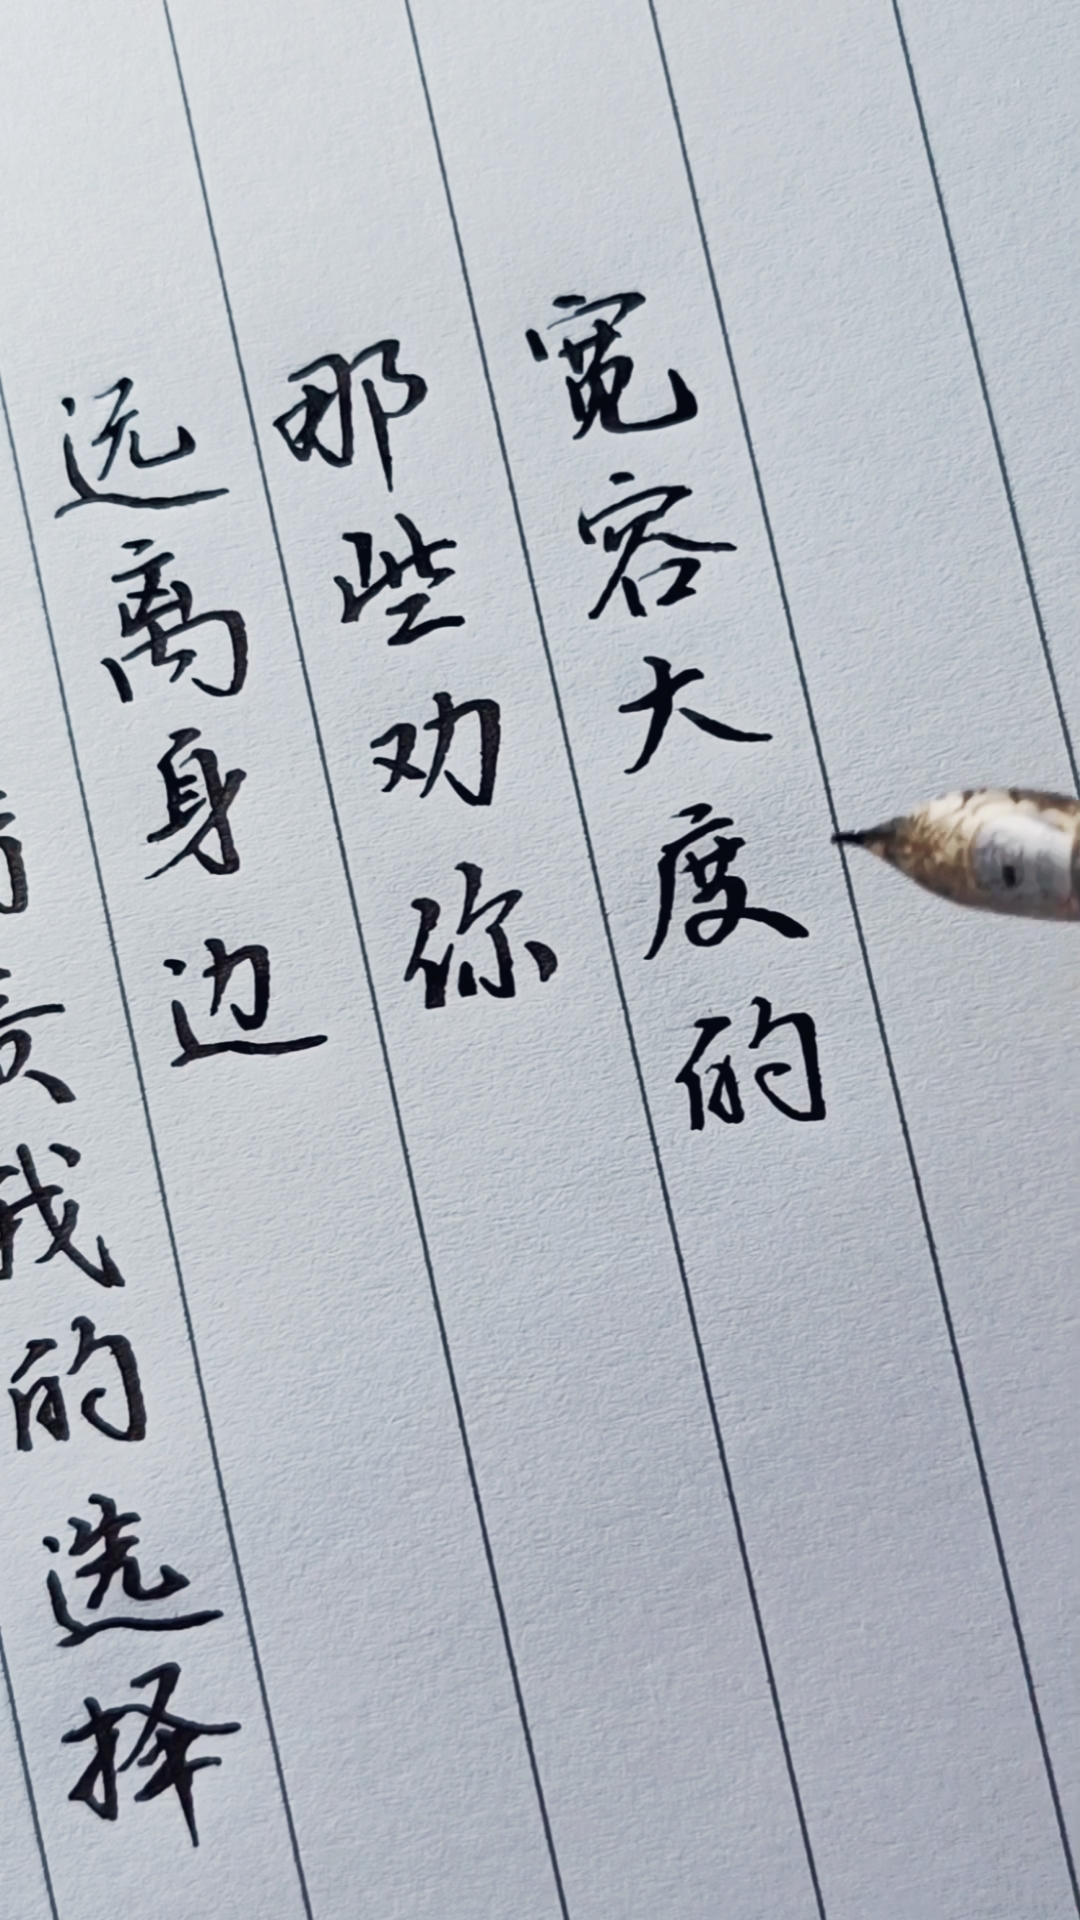 我的选择
远离身边
那些劝你
宽容大度的